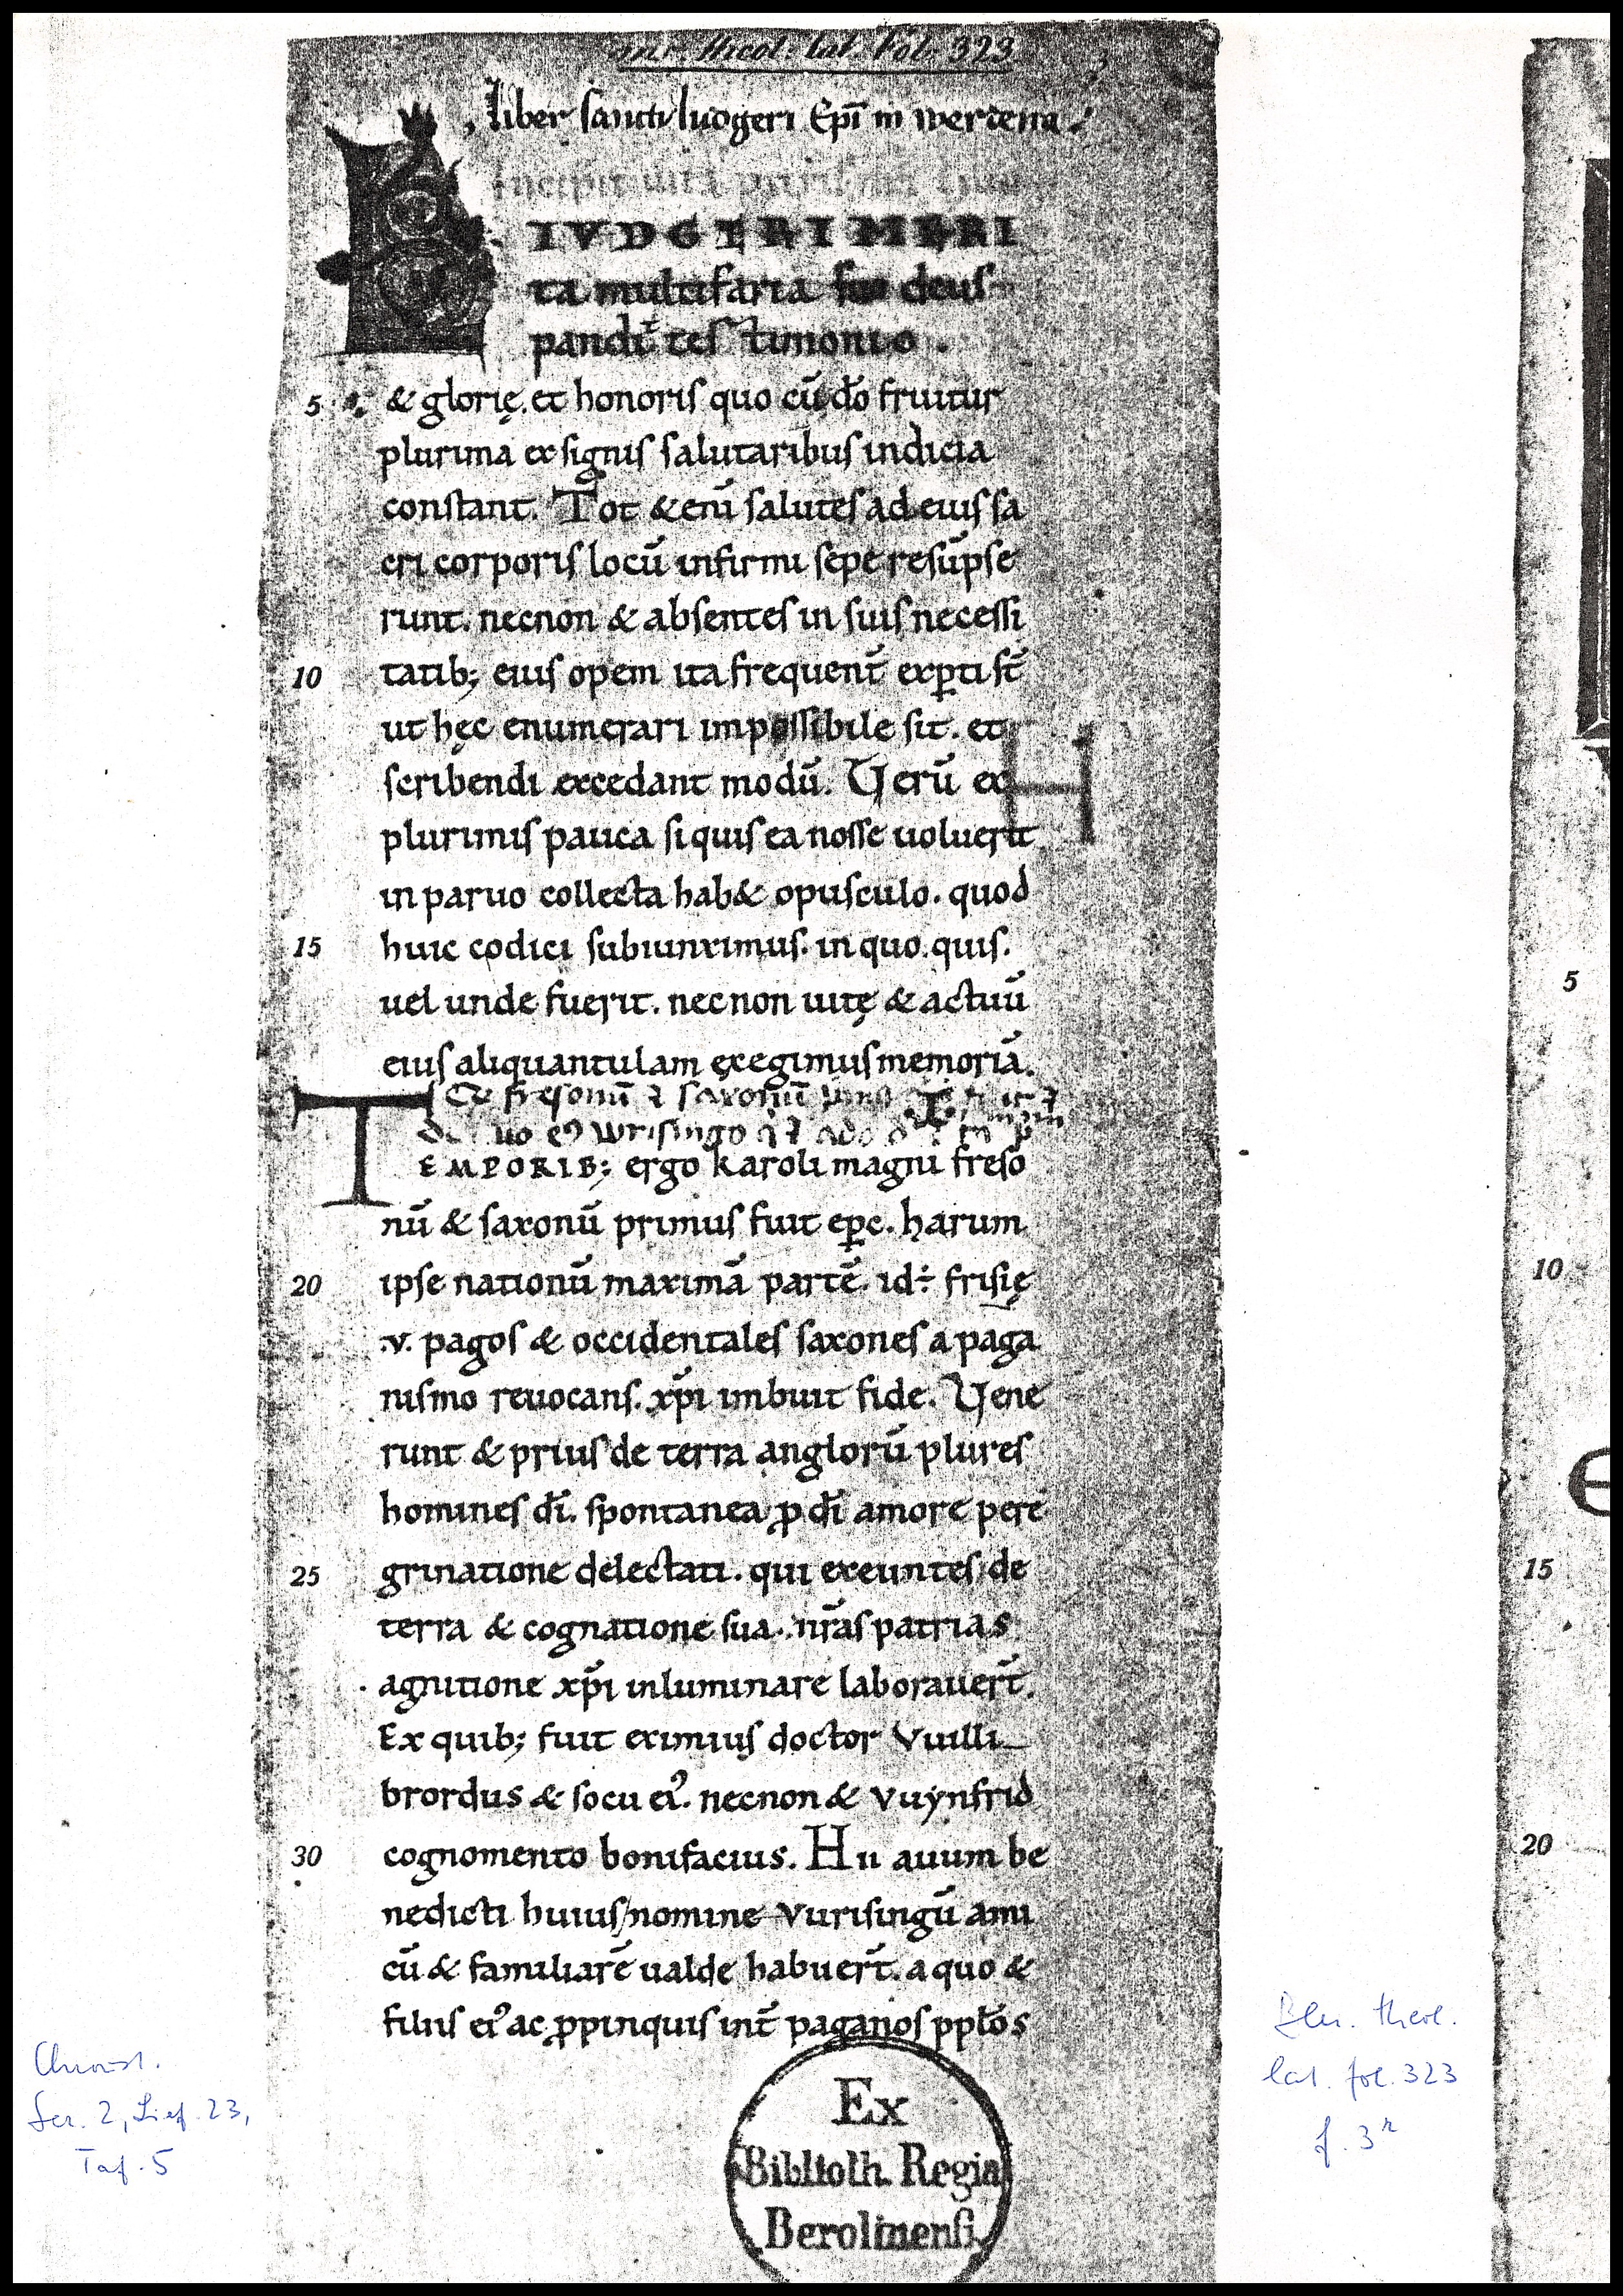 mr. theol. lat. Fol. 323
3
liber sancti ludgeri Ep̄i in werdena.
Incipit uita
IVDGERI MERI
ta multifaria suo deus
pandit testimonio.
5 & glorię. et honoris quo cū dō fruitur
plurima ex signis salutaribus indicia
constant. Tot & enī salutes ad eius sa
cri corporis locū infirmi sepe resūpse
runt. necnon & absentes in suis necessi
10 tatib; eius opem ita frequent̄ exꝑti st̄
ut hęc enumerari impossibile sit. et
scribendi excedant modū. Uerū ex
plurimis pauca si quis ea nosse uoluerit
in paruo collecta hab& opusculo. quod
15 huic codici subiunximus. in quo. quis.
uel unde fuerit. necnon uitę & actuū
eius aliquantulam exegimus memoriā.
De fresonū ⁊ saxonū
uo eꝰ wrisingo
TEMPORIB; ergo karoli magni freso
nū & saxonū primus fuit eꝑc. harum
20 ipse nationū maximā partē. id÷ frisię
.v. pagos & occidentales saxones a paga
nismo reuocans. xp̄i imbuit fide. Uene
runt & prius de terra anglorū plures
homines dī. spontanea ꝓ dī amore pere
25 grinatione delectati. qui exeuntes de
terra & cognatione sua. nr̄as patrias
agnitione xp̄i inluminare laborauer̄t.
Ex quib; fuit eximius doctor Vuilli
brordus & socii eiꝰ. necnon & Vuynfrid
30 cognomento bonifacius. Hii auum be
nedicti huius nomine Vurisingū ami
cū & familiarē ualde habuer̄t. a quo &
filiis eiꝰ ac ꝓpinquis int̄ paganos pplōs
Ex
Biblioth. Regia
Berolinensi
Chroust.
Ser. 2, Lief. 23,
Taf. 5
Bln. theol.
lat. fol. 323
f. 3r
5
10
15
20